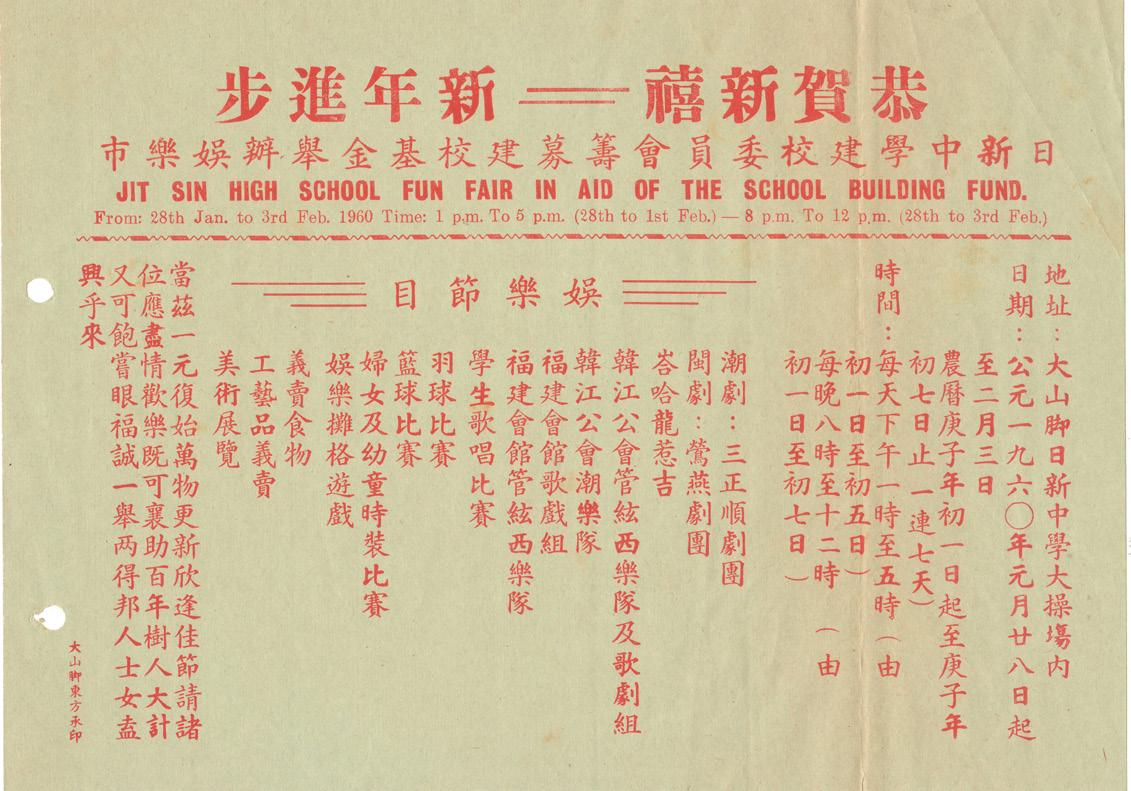 恭賀新禧 — 新年進步
日新中學建校委員會籌募建校基金舉辦娛樂市
JIT SIN HIGH SCHOOL FUN FAIR IN AID OF THE SCHOOL BUILDING FUND.
From: 28th Jan. to 3rd Feb. 1960 Time: 1 p.m. To 5 p.m. (28th to 1st Feb.) — 8 p.m. To 12 p.m. (28th to 3rd Feb.)
地址：大山脚日新中學大操場內
日期：公元一九六〇年元月廿八日起
至二月三日
農曆庚子年初一日起至庚子年
初七日止一連七天）
時間：每天下午一時至五時（由
初一日至初五日）
每晚八時至十二時（由
初一日至初七日）
娛樂節目
潮劇：三正順劇團
閩劇：鶯燕劇團
峇哈龍惹吉
韓江公會管絃西樂隊及歌劇組
韓江公會潮樂隊
福建會館歌戲組
福建會館管絃西樂隊
學生歌唱比賽
羽球比賽
籃球比賽
婦女及幼童時裝比賽
娛樂攤格遊戲
義賣食物
工藝品義賣
美術展覽
當茲一元復始萬物更新欣逢佳節請諸
位應盡情歡樂既可襄助百年樹人大計
又可飽嘗眼福誠一舉两得邦人士女盍
興乎來
大山脚東方承印